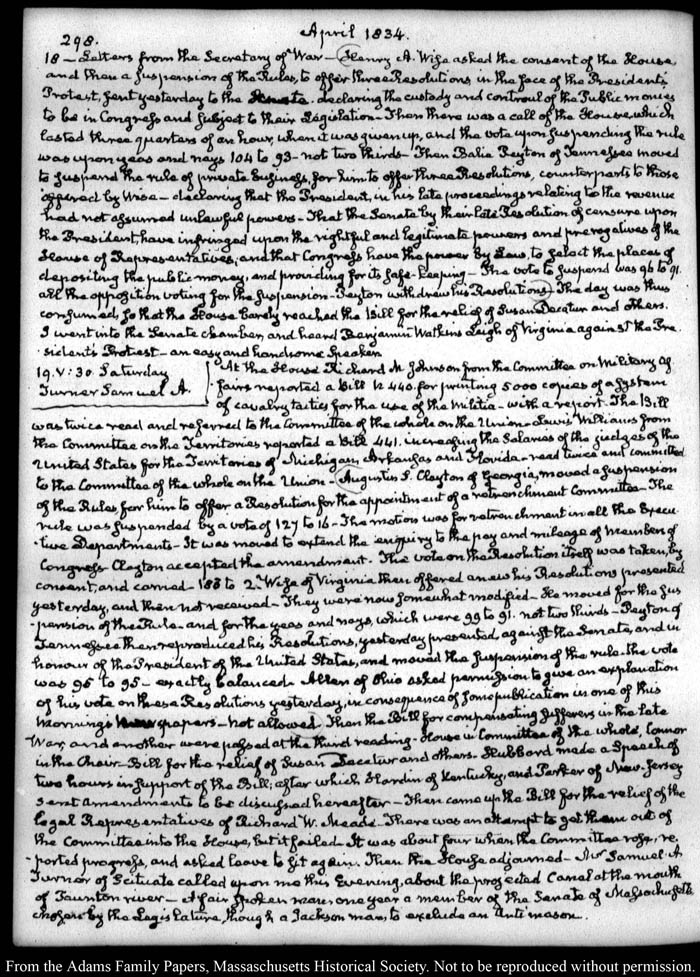 298.
April 1834.
18 — Letters from the Secretary of War — Henry A. Wise asked the consent of the House,
and then a suspension of the Rules, to offer three Resolutions, in the face of the President's
Protest, sent yesterday to the Senate. declaring the custody and controul of the Public monies
to be in Congress and subject to their Legislation — Then there was a call of the House, which
lasted three quarters of an hour, when it was given up, and the vote upon suspending the rule
was upon yeas and nays 104 to 93 — not two thirds — Then Balie Peyton of Tennessee moved
to suspend the rule of private business, for him to offer three Resolutions, counterparts to those
offered by Wise — declaring that the President, in his late proceedings relating to the revenue
had not assumed unlawful powers — That the Senate by their late Resolution of censure upon
the President, have infringed upon the rightful and legitimate powers and prerogatives of the
House of Representatives, and that Congress have the power by Law, to select the places of
depositing the public money, and providing for its safe-keeping — The vote to suspend was 96 to 91.
all the opposition voting for the suspension — Peyton withdrew his Resolutions — The day was thus
consumed, so that the House barely reached the Bill for the relief of Susan Decatur and others.
I went into the Senate chamber, and heard Benjamin Watkins Leigh of Virginia against the Pre
-sident's Protest — an easy and handsome Speaker
19. V: 30. Saturday
Turner Samuel A.
At the House Richard M. Johnson from the Committee on Military Af
-fairs reported a Bill N. 440. for printing 5000 copies of a System
of cavalry tactics for the use of the Militia — with a report. The Bill
was twice read and referred to the Committee of the whole on the Union — Lewis Williams from
the Committee on the Territories reported a Bill 441. increasing the Salaries of the judges of the
United States for the Territories of Michigan, Arkansas and Florida — read twice and committed
to the Committee of the whole on the Union — Augustin S. Clayton of Georgia, moved a suspension
of the Rules for him to offer a Resolution for the appointment of a retrenchment Committee — The
rule was suspended by a vote of 127 to 16 — The motion was for retrenchment in all the Execu
-tive Departments — It was moved to extend the enquiry to the pay and mileage of Members of
Congress — Clayton accepted the amendment. The vote on the Resolution itself was taken, by
consent, and carried — 183 to 2. Wise of Virginia then offered anew his Resolutions presented
yesterday, and then not received — They were now somewhat modified — He moved for the sus
-pension of the Rule — and for the yeas and nays, which were 99 to 91. not two thirds — Peyton of
Tennessee then reproduced his Resolutions, yesterday presented, against the Senate, and in
honour of the President of the United States, and moved the suspension of the rule — The vote
was 95 to 95 — exactly balanced — Allen of Ohio asked permission to give an explanation
of his vote on these Resolutions yesterday, in consequence of some publication in one of this
morning's papers — not allowed. Then the Bill for compensating sufferers in the late
War, and another were passed at the third reading. House in Committee of the whole, Connor
in the Chair — Bill for the relief of Susan Decatur and others. Hubbard made a Speech of
two hours in support of the Bill; after which Hardin of Kentucky, and Parker of New-Jersey
sent amendments to be discussed hereafter — Then came up the Bill for the relief of the
legal Representatives of Richard W. Meade — There was an attempt to get them out of
the Committee into the House, but it failed — It was about four when the Committee rose, re,
-ported progress, and asked leave to sit again. Then the House adjourned — Mr Samuel A
Turner of Scituate called upon me this Evening, about the projected Canal at the mouth
of Taunton river — A fair spoken man, one year a member of the Senate of Massachusetts
chosen by the Legislature, though a Jackson man, to exclude an Antimason.
From the Adams Family Papers, Massachusetts Historical Society. Not to be reproduced without permission.